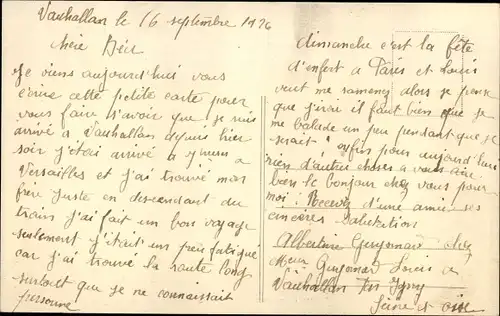 Vauhallan le 16 septembre 1926
Chère
Je viens aujourd'hui vous
écrire cette petite carte pour
vous faire s'avoir que je suis
arrivé à Vauhallan depuis hier
soir j'étai arrivé a
Versailles et j'ai trouvé mon
frère juste en descendant du
train j'ai fait un bon voyage
seulement j'était un peu fatigué
car j'ai trouvé la route long
surtout que je ne connaissait
personne
dimanche c'est la fête
d'enfort a Paris et Louis
veut me samener alors je pense
que j'irai il faut bien que je
me balade un peu pendant que je
serait enfins pour aujourd'hui
rien d'autres choses a vous dire
bien le bonjour chez vous pour
moi. Recevez d'une amie ses
sincères Salutation
Albertine Guyomard chez
Guyomard Louis a
Vauhallan Par Igny
Seine et oise